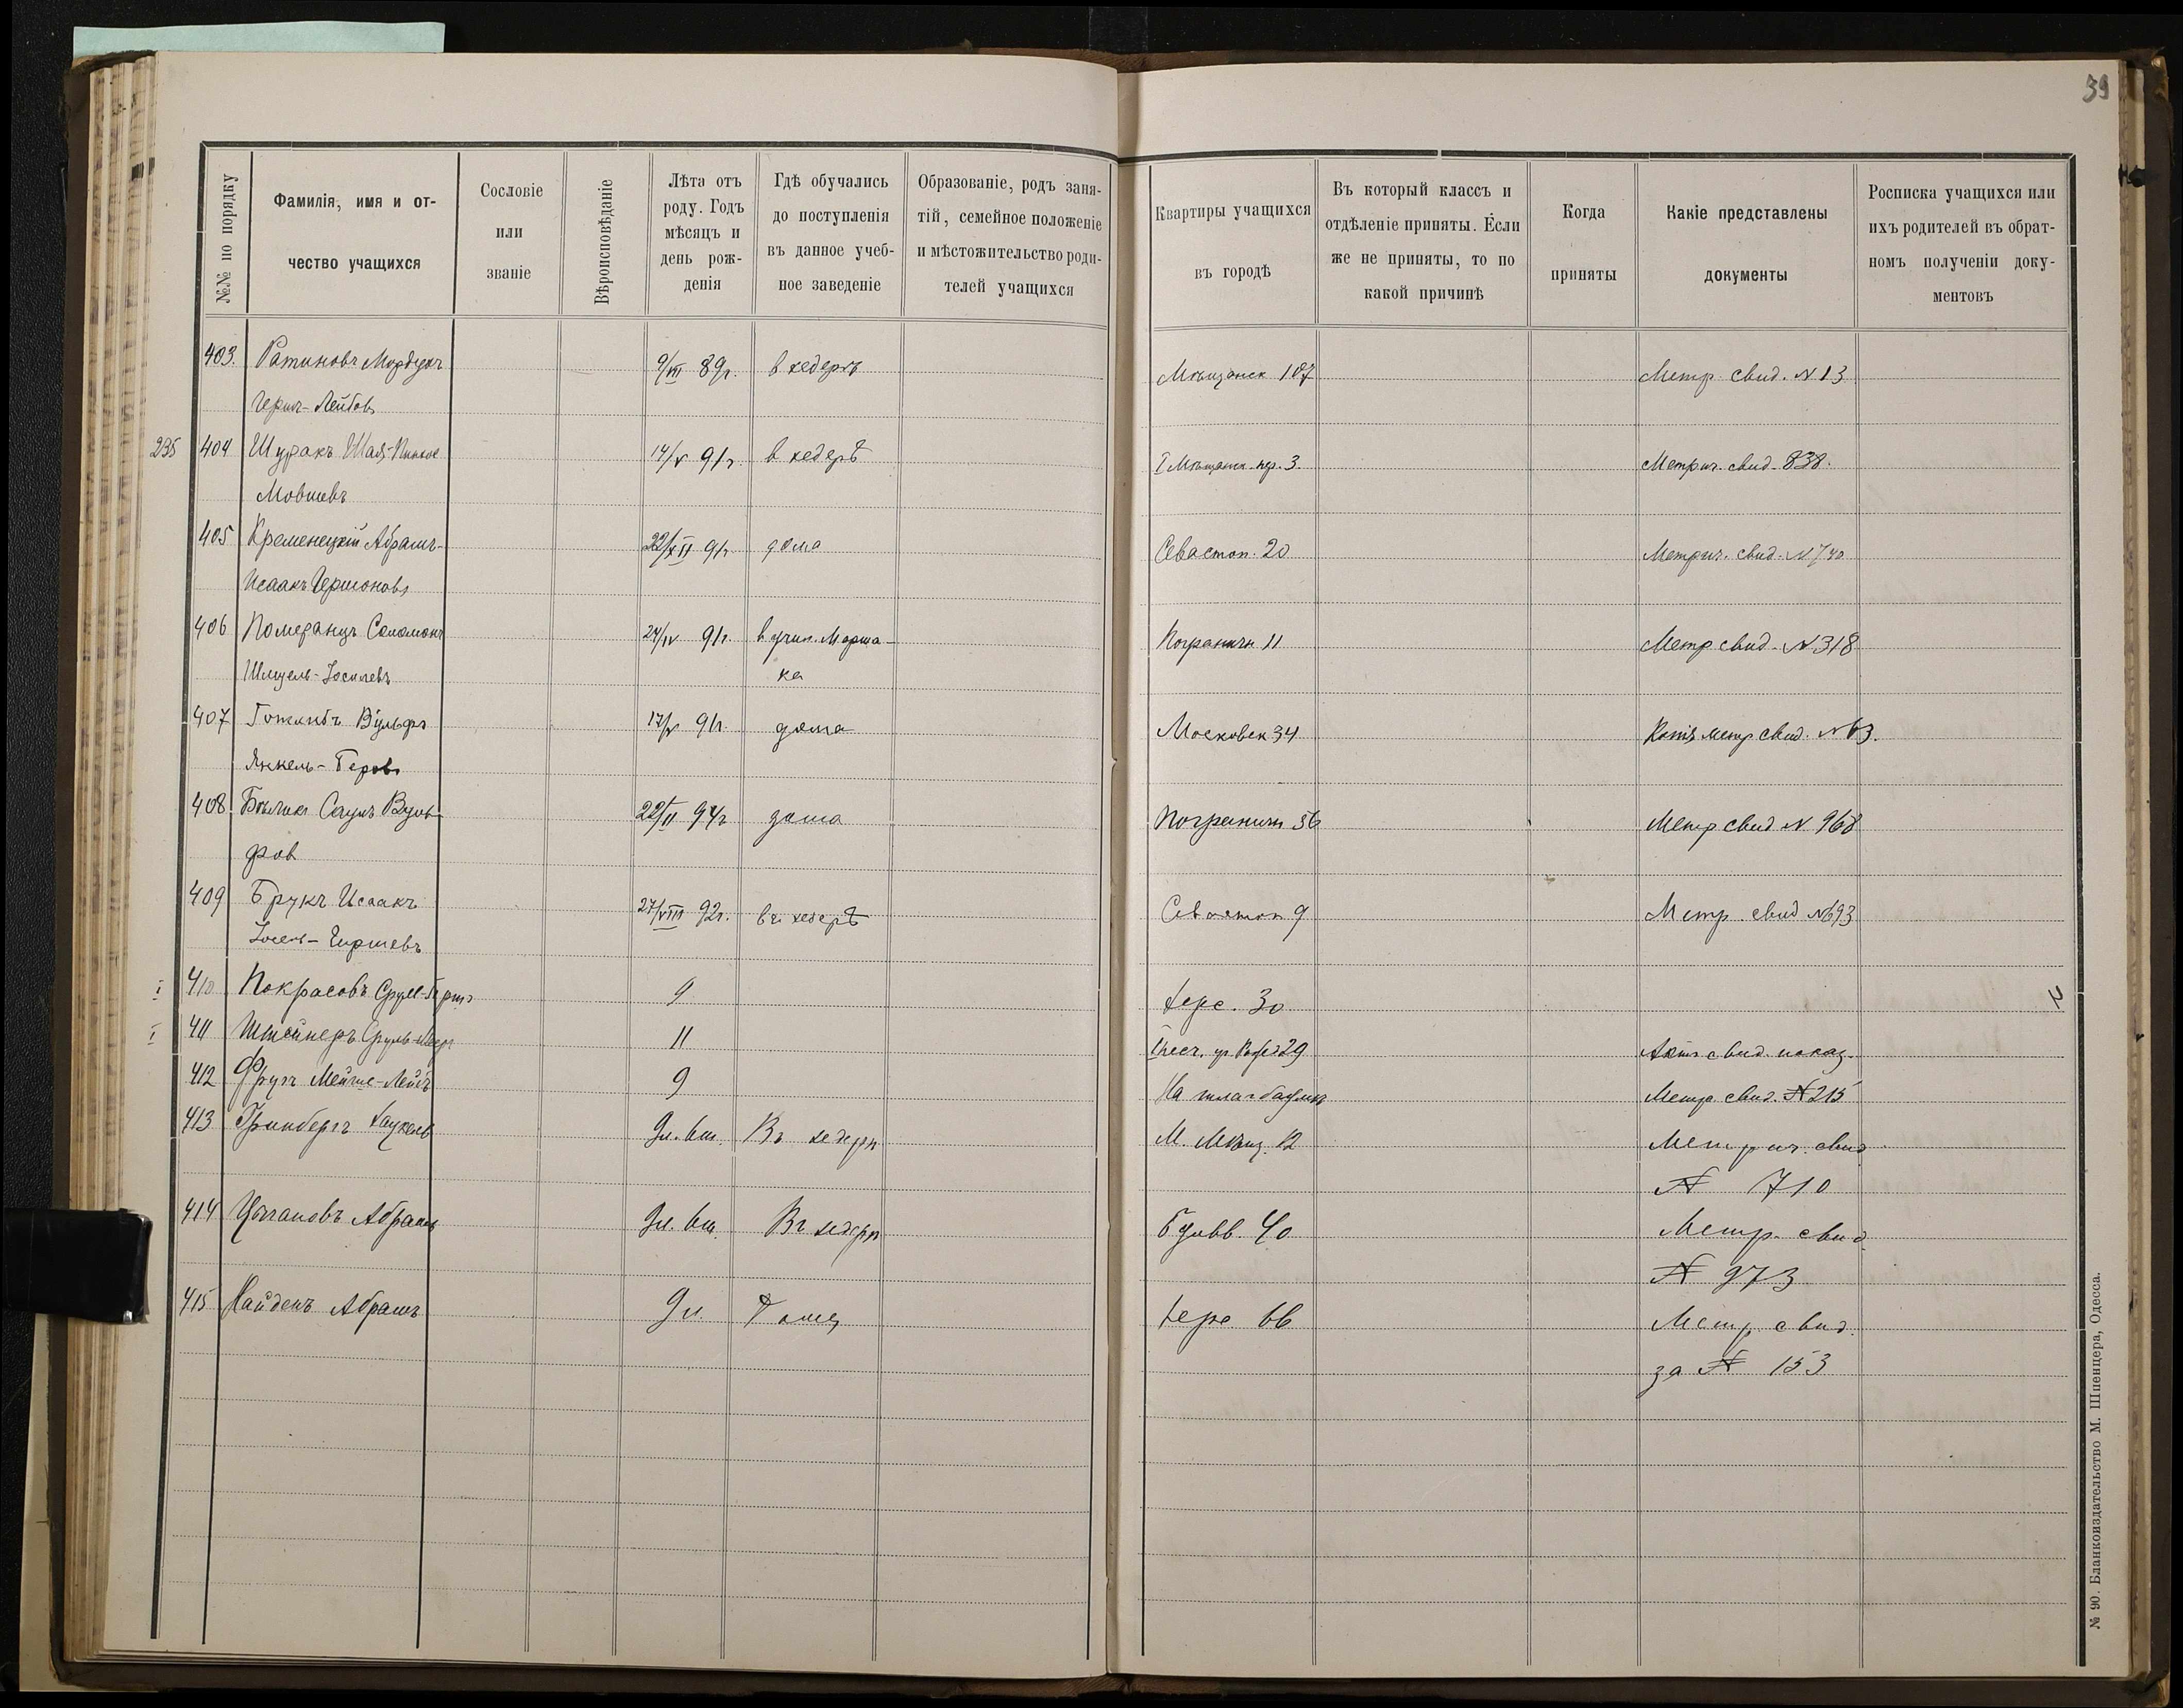 39
№№ по порядку
Фамилія, имя и от-
чество учащихся
Сословіе
или
званіе
Вѣроисповѣданіе
Лѣта отъ
роду. Годъ
мѣсяцъ и
день рож-
денія
Гдѣ обучались
до поступленія
въ данное учеб-
ное заведеніе
Образованіе, родъ заня-
тій, семейное положеніе
и мѣстожительство роди-
телей учащихся
Квартиры учащихся
въ городѣ
Въ который классъ и
отдѣленіе приняты. Если
же не приняты, то по
какой причинѣ
Когда
приняты
Какіе представлены
документы
Росписка учащихся или
ихъ родителей въ обрат-
номъ полученіи доку-
ментовъ
403. Ратиновъ Мордухъ 9/VII 89г. в хедерѣ Мѣщанск 107 Метр. свид. N 13
Герш-Лейбовъ
235 404 Шуракъ Шая-Пинхос 14/V 91г. в хедерѣ I Мѣщанск. пер. 3 Метрич. свид. 838.
Мовшевъ
405 Кременецкій Абрамъ- 22/XII 91г. дома Севастоп. 20 Метрич. свид. N 740
Исаакъ Гершоновъ
406 Померанцъ Соломонъ 24/IV 91г. в учил. Марша- Погранич 11 Метр свид. N 318
Шмуель-Іосилевъ ка
407 Готлибъ Вульфъ 17/V 91г. дома Московск 34 Копія метр свид. N 63.
Янкель-Беровъ
408 Бѣлик Саулъ Вуль- 22/II 94г дома Погранич 56 Метр свид N 968
фов
409 Брукъ Исаакъ 27/VIII 92г. въ хедерѣ Севастоп 9 Метр. свид N 693
Іосель-Гиршевъ
I 410 Покрасовъ Срул-Герш 9 Херс. 30
I 411 Штейнеръ Сруль-Меер 11 29 свид. показ.
412 Фругъ Мейше-Лейб 9 На шлагбаумѣ Метр свид. N 215
413 Гринбергъ Хацкель 9 л. Въ хедерѣ М. Мѣщ. 12 Метрич. свид
N 710
414 Цыгановъ Абрамъ 9 л. Въ хедерѣ Бульв. 40 Метр. свид.
N 973
415 Найденъ Абрамъ 9 л. Дома Херс. 66 Метр. свид.
за N 153
№ 90. Бланкоиздательство М. Шпенцера, Одесса.